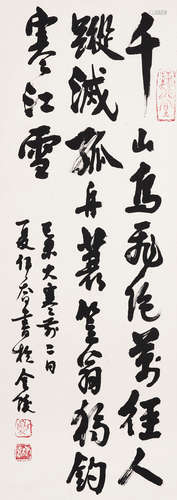 千山鳥飛絕萬徑人
蹤滅孤舟蓑笠翁獨釣
寒江雪
己未大寒前二日
夏伊喬書於金陵